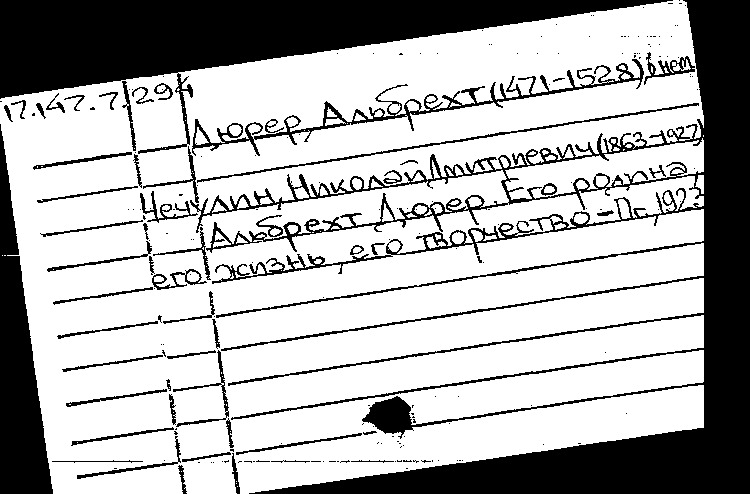 17.147.7.294
Дюрер, Альбрехт (1471-1528), о нем
Нечулин, Николай Дмитриевич (1863-1927)
Альбрехт Дюрер. Его родина,
его жизнь, его творчество - Пг, 1923